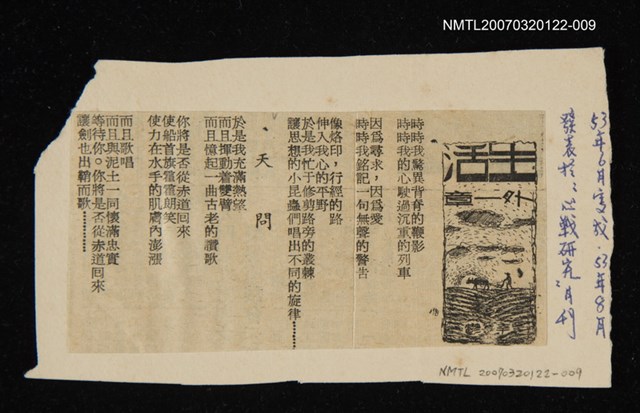 NMTL20070320122-009
生活
外一章
時時我驚異背脊的鞭影
時時我的心駛過沉重的列車
因爲尋求，因爲愛
時時我銘記一句無聲的警告
像烙印，行經的路
伸入我心的平野
於是我忙于修剪路旁的叢棘
讓思想的小昆蟲們唱出不同的旋律…………
、天問
於是我充滿熱望
而且揮動着雙臂
而且憶起一曲古老的讚歌
你將是否從赤道回來
使船首旗獵獵朗笑
使力在水手的肌膚內澎漲
而且歌唱
而且與泥土一同懷滿忠實
等待你。你將是否從赤道回來
讓劍也出鞘而歌…………
53年6月
53年8月
發表於
研究月刊
NMTL 20070320122-009